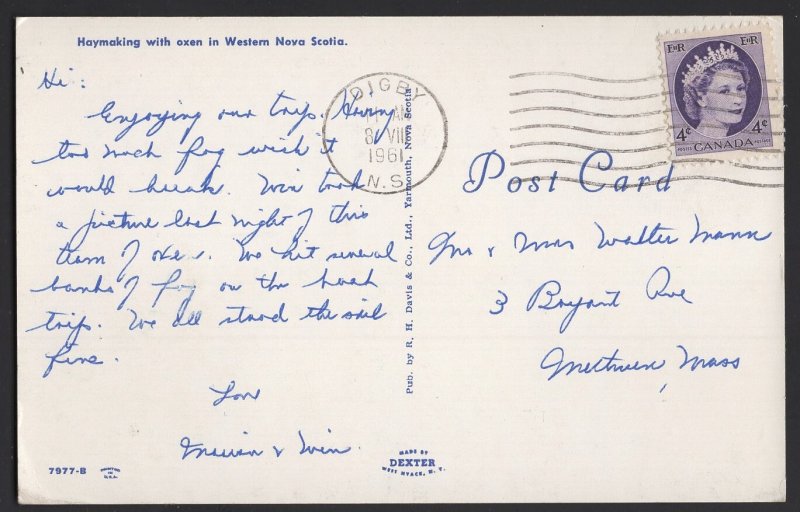 Haymaking with oxen in Western Nova Scotia.
Hi:
Enjoying our trip. Having
too much fog wish it
would break. Win took
a picture last night of this
team of oxen. We hit several
banks of fog on the boat
trip. We all stood the sail
fine.
Love
& Win
7977-B
PRINTED IN U.S.A.
Pub. by R. H. Davis & Co., Ltd., Yarmouth, Nova Scotia
MADE BY
DEXTER
WEST NYACK, N. Y.
DIGBY
AM
8 VIII
1961
N.S.
EIIR EIIR
4¢ 4¢
POSTES CANADA POSTAGE
Post Card
Mr & Mrs Walter Mann
3 Bryant Ave
Methuen, Mass